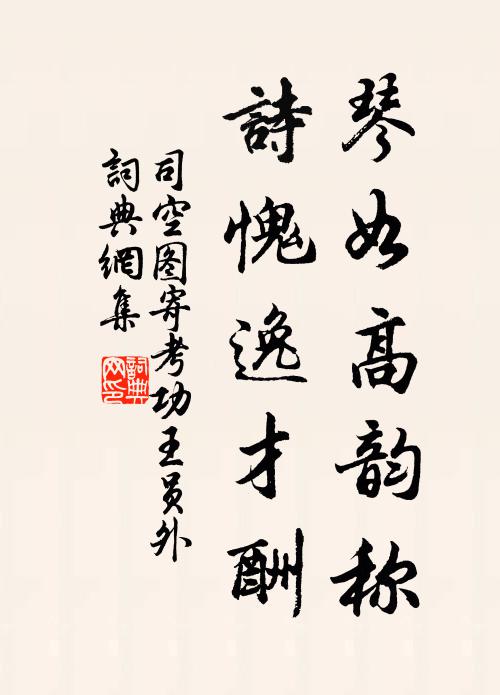 琴如高韵称
詩愧逸才酬
司空图寄考功王员外
詞典網集
詞典网印